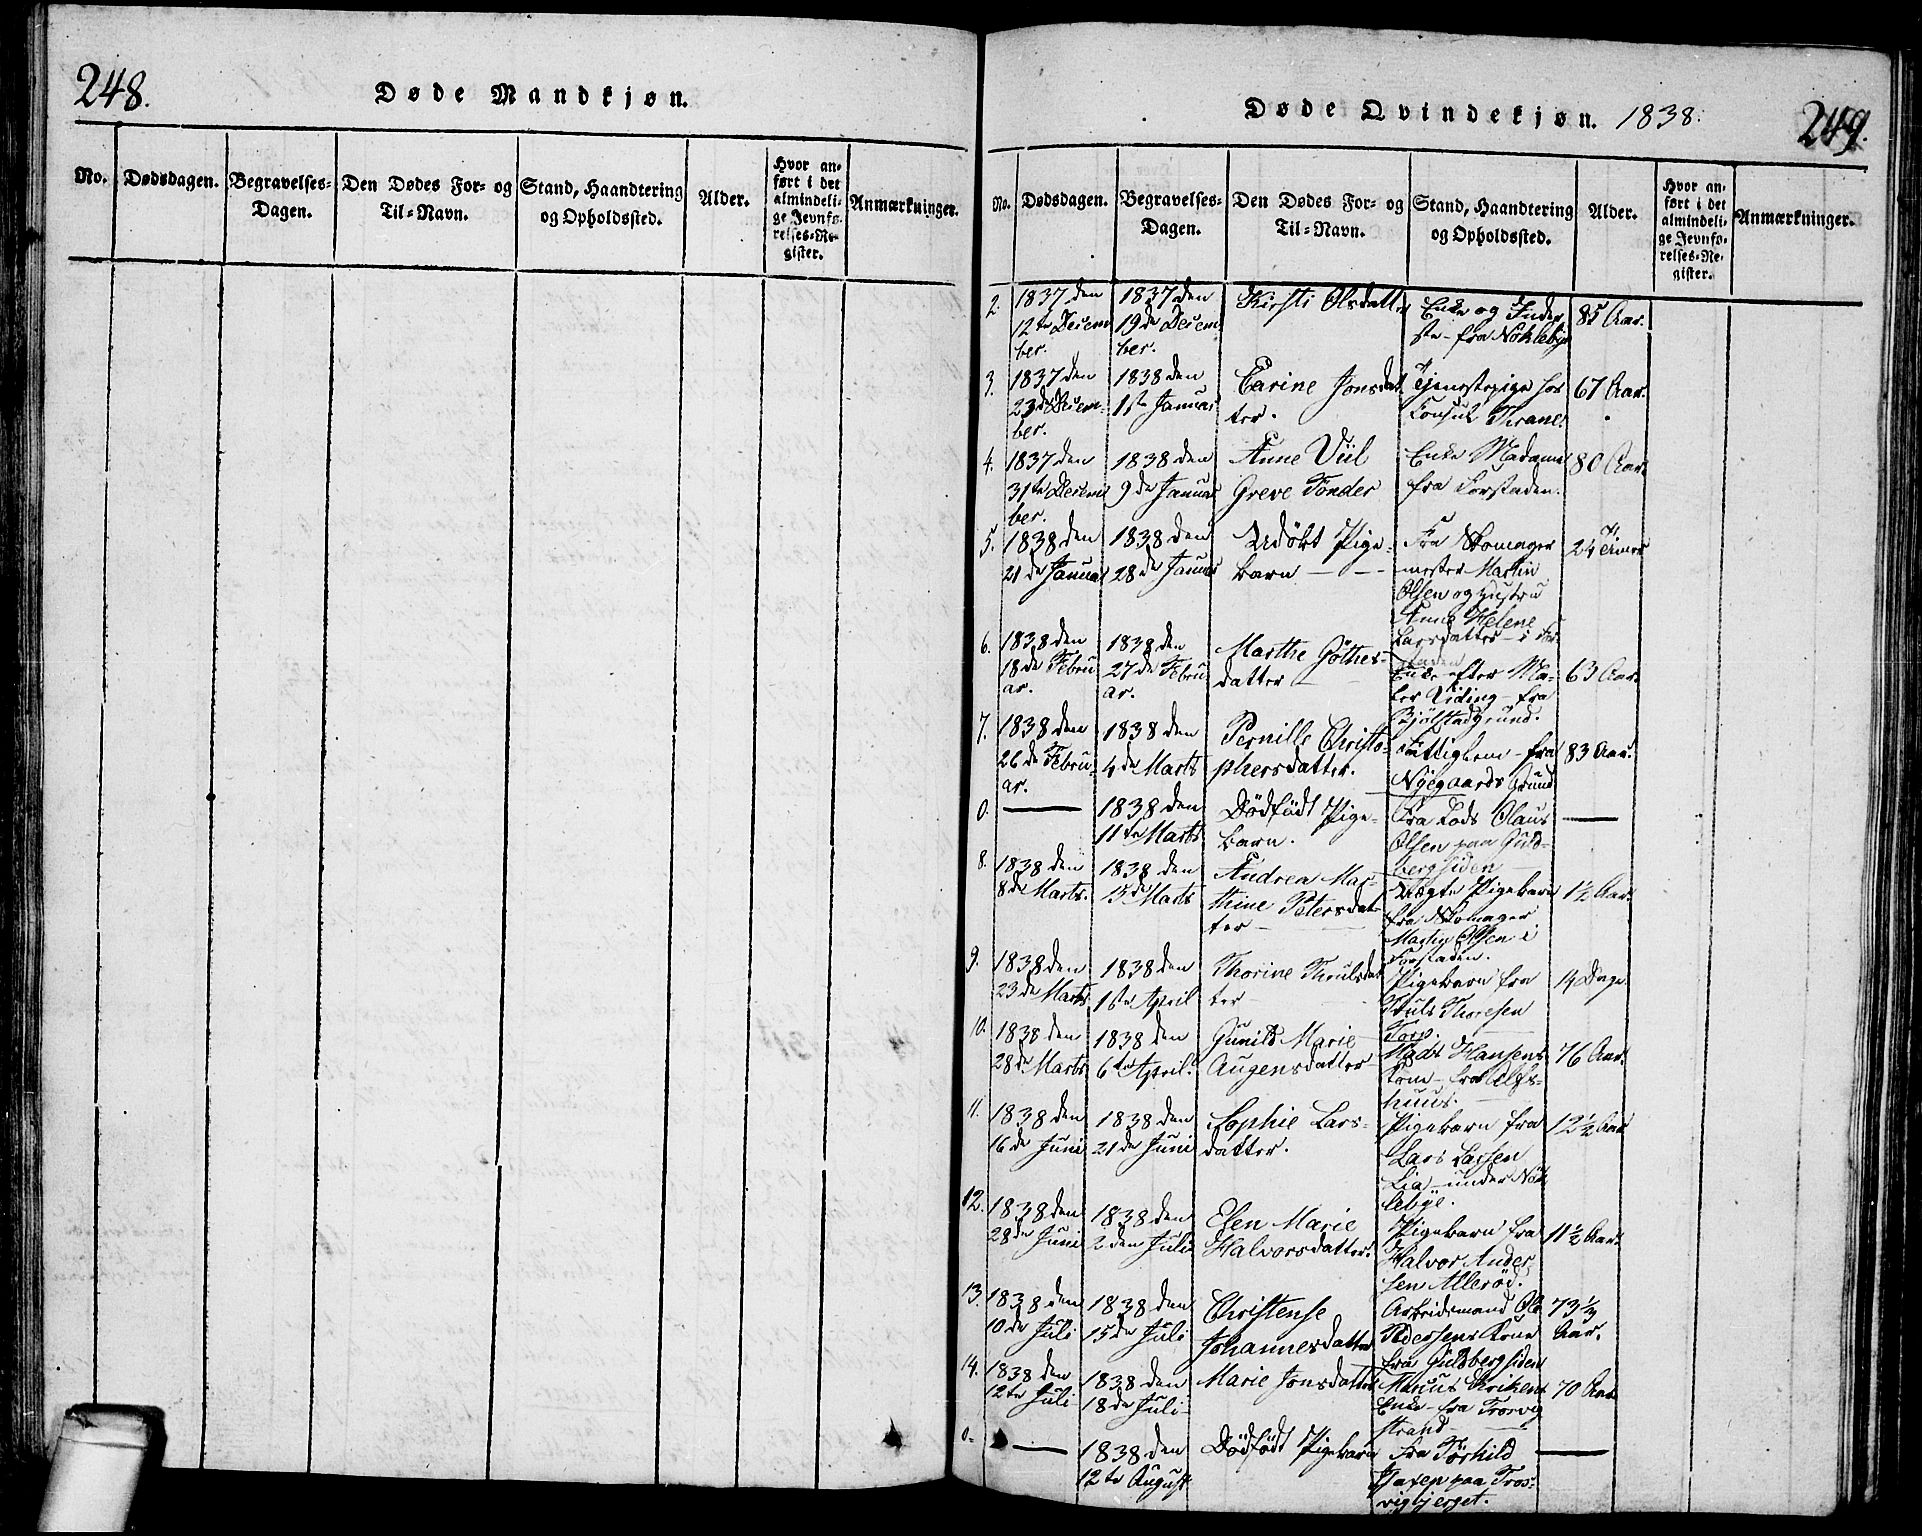 248.
Døde Mandkjøn.
No.
Dødsdagen.
Begravelses-
Dagen.
Den Dødes For- og
Til-Navn.
Stand, Haandtering
og Opholdssted.
Alder.
Hvor an-
ført i det
almindeli-
ge Jevnfø-
relses-Re-
gister.
Anmærkninger.
Døde Qvindekjøn. 1838.
249.
No.
Dødsdagen.
Begravelses-
Dagen.
Den Dødes For- og
Til-Navn.
Stand, Haandtering
og Opholdssted.
Alder.
Hvor an-
ført i det
almindeli-
ge Jevnfø-
relses-Re-
gister.
Anmærkninger.
2.
1837 den
12te Decem
ber.
1837 den
19de Decem
ber.
Kirsti Olsdatter
Enke og Inder
ste - fra Nøklebye
85 Aar.
3.
1837 den
23de Decem-
ber.
1838 den
1ste Januar
Carine Jonsdat
ter.
Tjenestepige hos
Consul Thrane.
67 Aar.
4.
1837 den
31te Decem
ber.
1838 den
9de Januar
Anne Viil
Greve Tonder
Enke Madame
fra Forstaden.
80 Aar.
5.
1838 den
21de Januar
1838 den
28de Januar
Udöbt Pige-
barn
Fra Skomager
mester Martin
Olsen og Hustru
Anne Helene
Larsdatter - i For
staden
24 Timer
6.
1838 den
18de Febru
ar.
1838 den
27de Febru
ar.
Marthe Göthes-
datter
Enke efter Ma-
ler Uding - fra
Bjölstadgrund.
63 Aar.
7.
1838 den
26de Febru-
ar.
1838 den
4de Marts
Pernille Christo-
phersdatter.
Fattiglem - fra
Nyegaards Grund
83 Aar.
0.
1838 den
11te Marts
Dödfödt Pige-
barn.
Fra Lods Olaus
Olsen paa Guld-
bergsiden
8.
1838 den
8de Marts.
1838 den
15de Marts
Andrea Mar-
thine Petersdat-
ter
Uægte Pigebarn
fra Skomager
Martin Olsen i
Forstaden.
1½ Aar.
9.
1838 den
23de Marts
1838 den
1ste April
Thorine Thrulsdat
ter
Pigebarn fra
Truls Thoresen
Torp.
14 Dage.
10.
1838 den
28de Marts
1838 den
6te April.
Gunild Marie
Augensdatter
Mads Hansens
Kone - fra Alfs-
huus.
76 Aar.
11.
1838 den
16de Juni
1838 den
21de Juni
Sophie Lars-
datter.
Pigebarn fra
Lars Larsen
Lia - under Nök
lebye.
12½ Aar
12.
1838 den
28de Juni
1838 den
2den Juli
Elen Marie
Halvorsdatter.
Pigebarn fra
Halvor Ander
sen Alleröd.
11½ Aar.
13.
1838 den
10de Juli
1838 den
15de Juli
Christense
Johannesdatter
Arbeidsmand Ole
Pedersens Kone
fra Guldbergsiden
73⅓
Aar.
14.
1838 den
12te Juli
1838 den
18de Juli
Marie Jonsdatter
Marcus Eriksens
Enke - fra Trosvig
strand
70 Aar
0.
1838 den
12te August
Dödfödt Pigebarn
Fra Törhild
paa Tros-
vigbjerget.